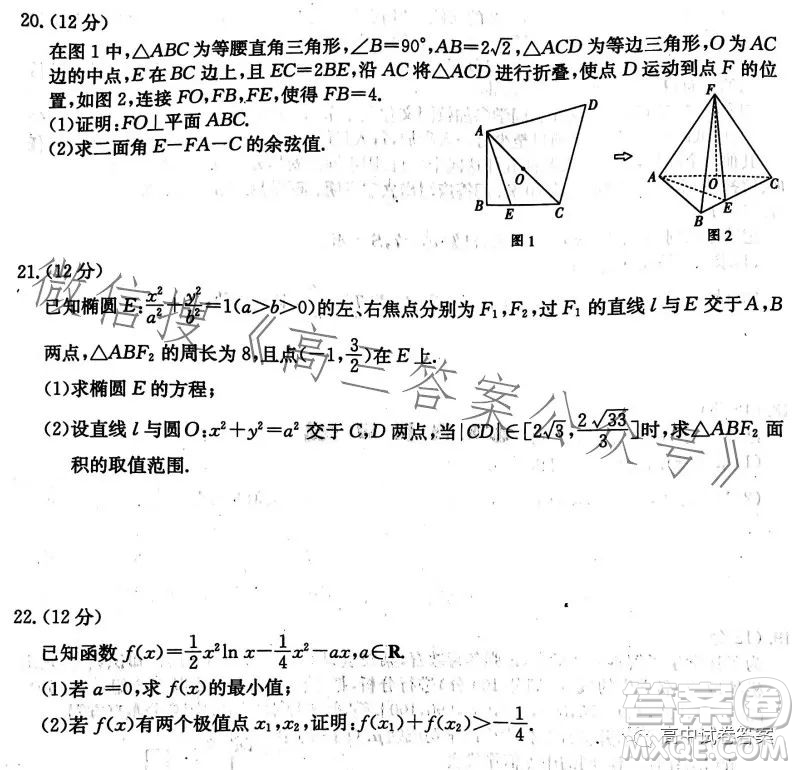 20.(12分)
在图1中,△ABC为等腰直角三角形,∠B=90°,AB=2√2,△ACD为等边三角形,O为AC
边的中点,E在BC边上,且EC=2BE,沿AC将△ACD进行折叠,使点D运动到点F的位
置,如图2,连接FO,FB,FE,使得FB=4.
(1)证明:FO⊥平面ABC.
(2)求二面角E-FA-C的余弦值.
A
D
O
B
E
C
图1
⇨
F
A
O
C
B
E
图2
21.(12分)
已知椭圆E:x²/a²+y²/b²=1(a>b>0)的左、右焦点分别为F₁,F₂,过F₁的直线l与E交于A,B
两点,△ABF₂的周长为8,且点(-1,3/2)在E上.
(1)求椭圆E的方程;
(2)设直线l与圆O:x²+y²=a²交于C,D两点,当|CD|∈[2√3,2√33/3]时,求△ABF₂面
积的取值范围.
微信搜《高三答案公众号》
22.(12分)
已知函数f(x)=1/2x²ln x-1/4x²-ax,a∈R.
(1)若a=0,求f(x)的最小值;
(2)若f(x)有两个极值点x₁,x₂,证明:f(x₁)+f(x₂)>-1/4.
高中试卷答案
答案圈
MXQE.COM